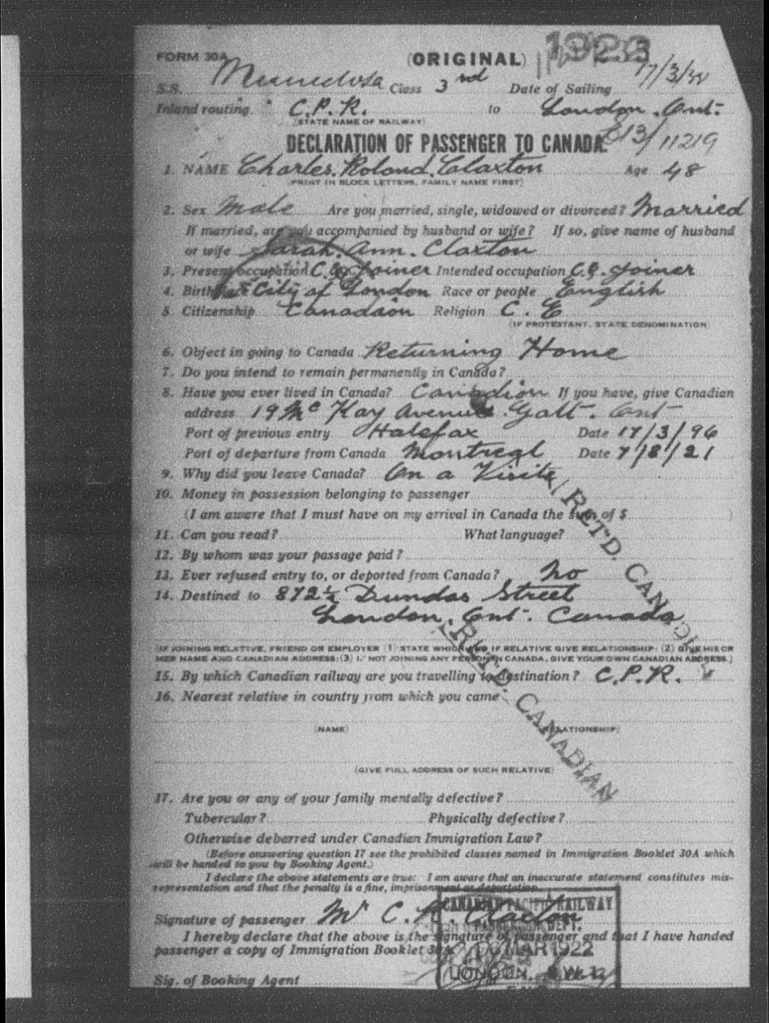 FORM 30A (ORIGINAL) 1923
S.S. Minnedosa Class 3rd Date of Sailing 17/3/22
Inland routing C.P.R. to London. Ont.
(STATE NAME OF RAILWAY)
DECLARATION OF PASSENGER TO CANADA. 11219
1. NAME Charles. Roland. Claxton Age 48
(PRINT IN BLOCK LETTERS, FAMILY NAME FIRST)
2. Sex Male Are you married, single, widowed or divorced? Married
If married, are you accompanied by husband or wife? If so, give name of husband
or wife Sarah. Ann. Claxton
3. Present occupation Joiner Intended occupation Joiner
4. Birthplace City of London Race or people English
5. Citizenship Canadaion Religion C. E
(IF PROTESTANT, STATE DENOMINATION)
6. Object in going to Canada Returning Home
7. Do you intend to remain permanently in Canada?
8. Have you ever lived in Canada? Canadion If you have, give Canadian
address 19 Mc Kay Avenue. Galt. Ont
Port of previous entry Halefax Date 17/3/96
Port of departure from Canada Montreal Date 7/8/21
9. Why did you leave Canada? On a Visite
10. Money in possession belonging to passenger
(I am aware that I must have on my arrival in Canada the sum of $ )
11. Can you read? What language?
12. By whom was your passage paid?
13. Ever refused entry to, or deported from Canada? No
14. Destined to 872½ Dundas Street
London. Ont. Canada
RET'D. CANADIAN
(IF JOINING RELATIVE, FRIEND OR EMPLOYER (1) STATE WHICH; IF RELATIVE GIVE RELATIONSHIP: (2) GIVE HIS OR
HER NAME AND CANADIAN ADDRESS: (3) IF NOT JOINING ANY PERSON IN CANADA, GIVE YOUR OWN CANADIAN ADDRESS.)
15. By which Canadian railway are you travelling to destination? C.P.R.
16. Nearest relative in country from which you came
RET'D. CANADIAN
(NAME) (RELATIONSHIP)
(GIVE FULL ADDRESS OF SUCH RELATIVE)
17. Are you or any of your family mentally defective?
Tubercular? Physically defective?
Otherwise debarred under Canadian Immigration Law?
(Before answering question 17 see the prohibited classes named in Immigration Booklet 30A which
will be handed to you by Booking Agent.)
I declare the above statements are true: I am aware that an inaccurate statement constitutes mis-
representation and that the penalty is a fine, imprisonment or deportation.
CANADIAN PACIFIC RAILWAY
Signature of passenger Mr C. R. Claxton
PASSENGER DEPT.
I hereby declare that the above is the signature of passenger and that I have handed
passenger a copy of Immigration Booklet 30A
MAR 1922
LONDON,
Sig. of Booking Agent